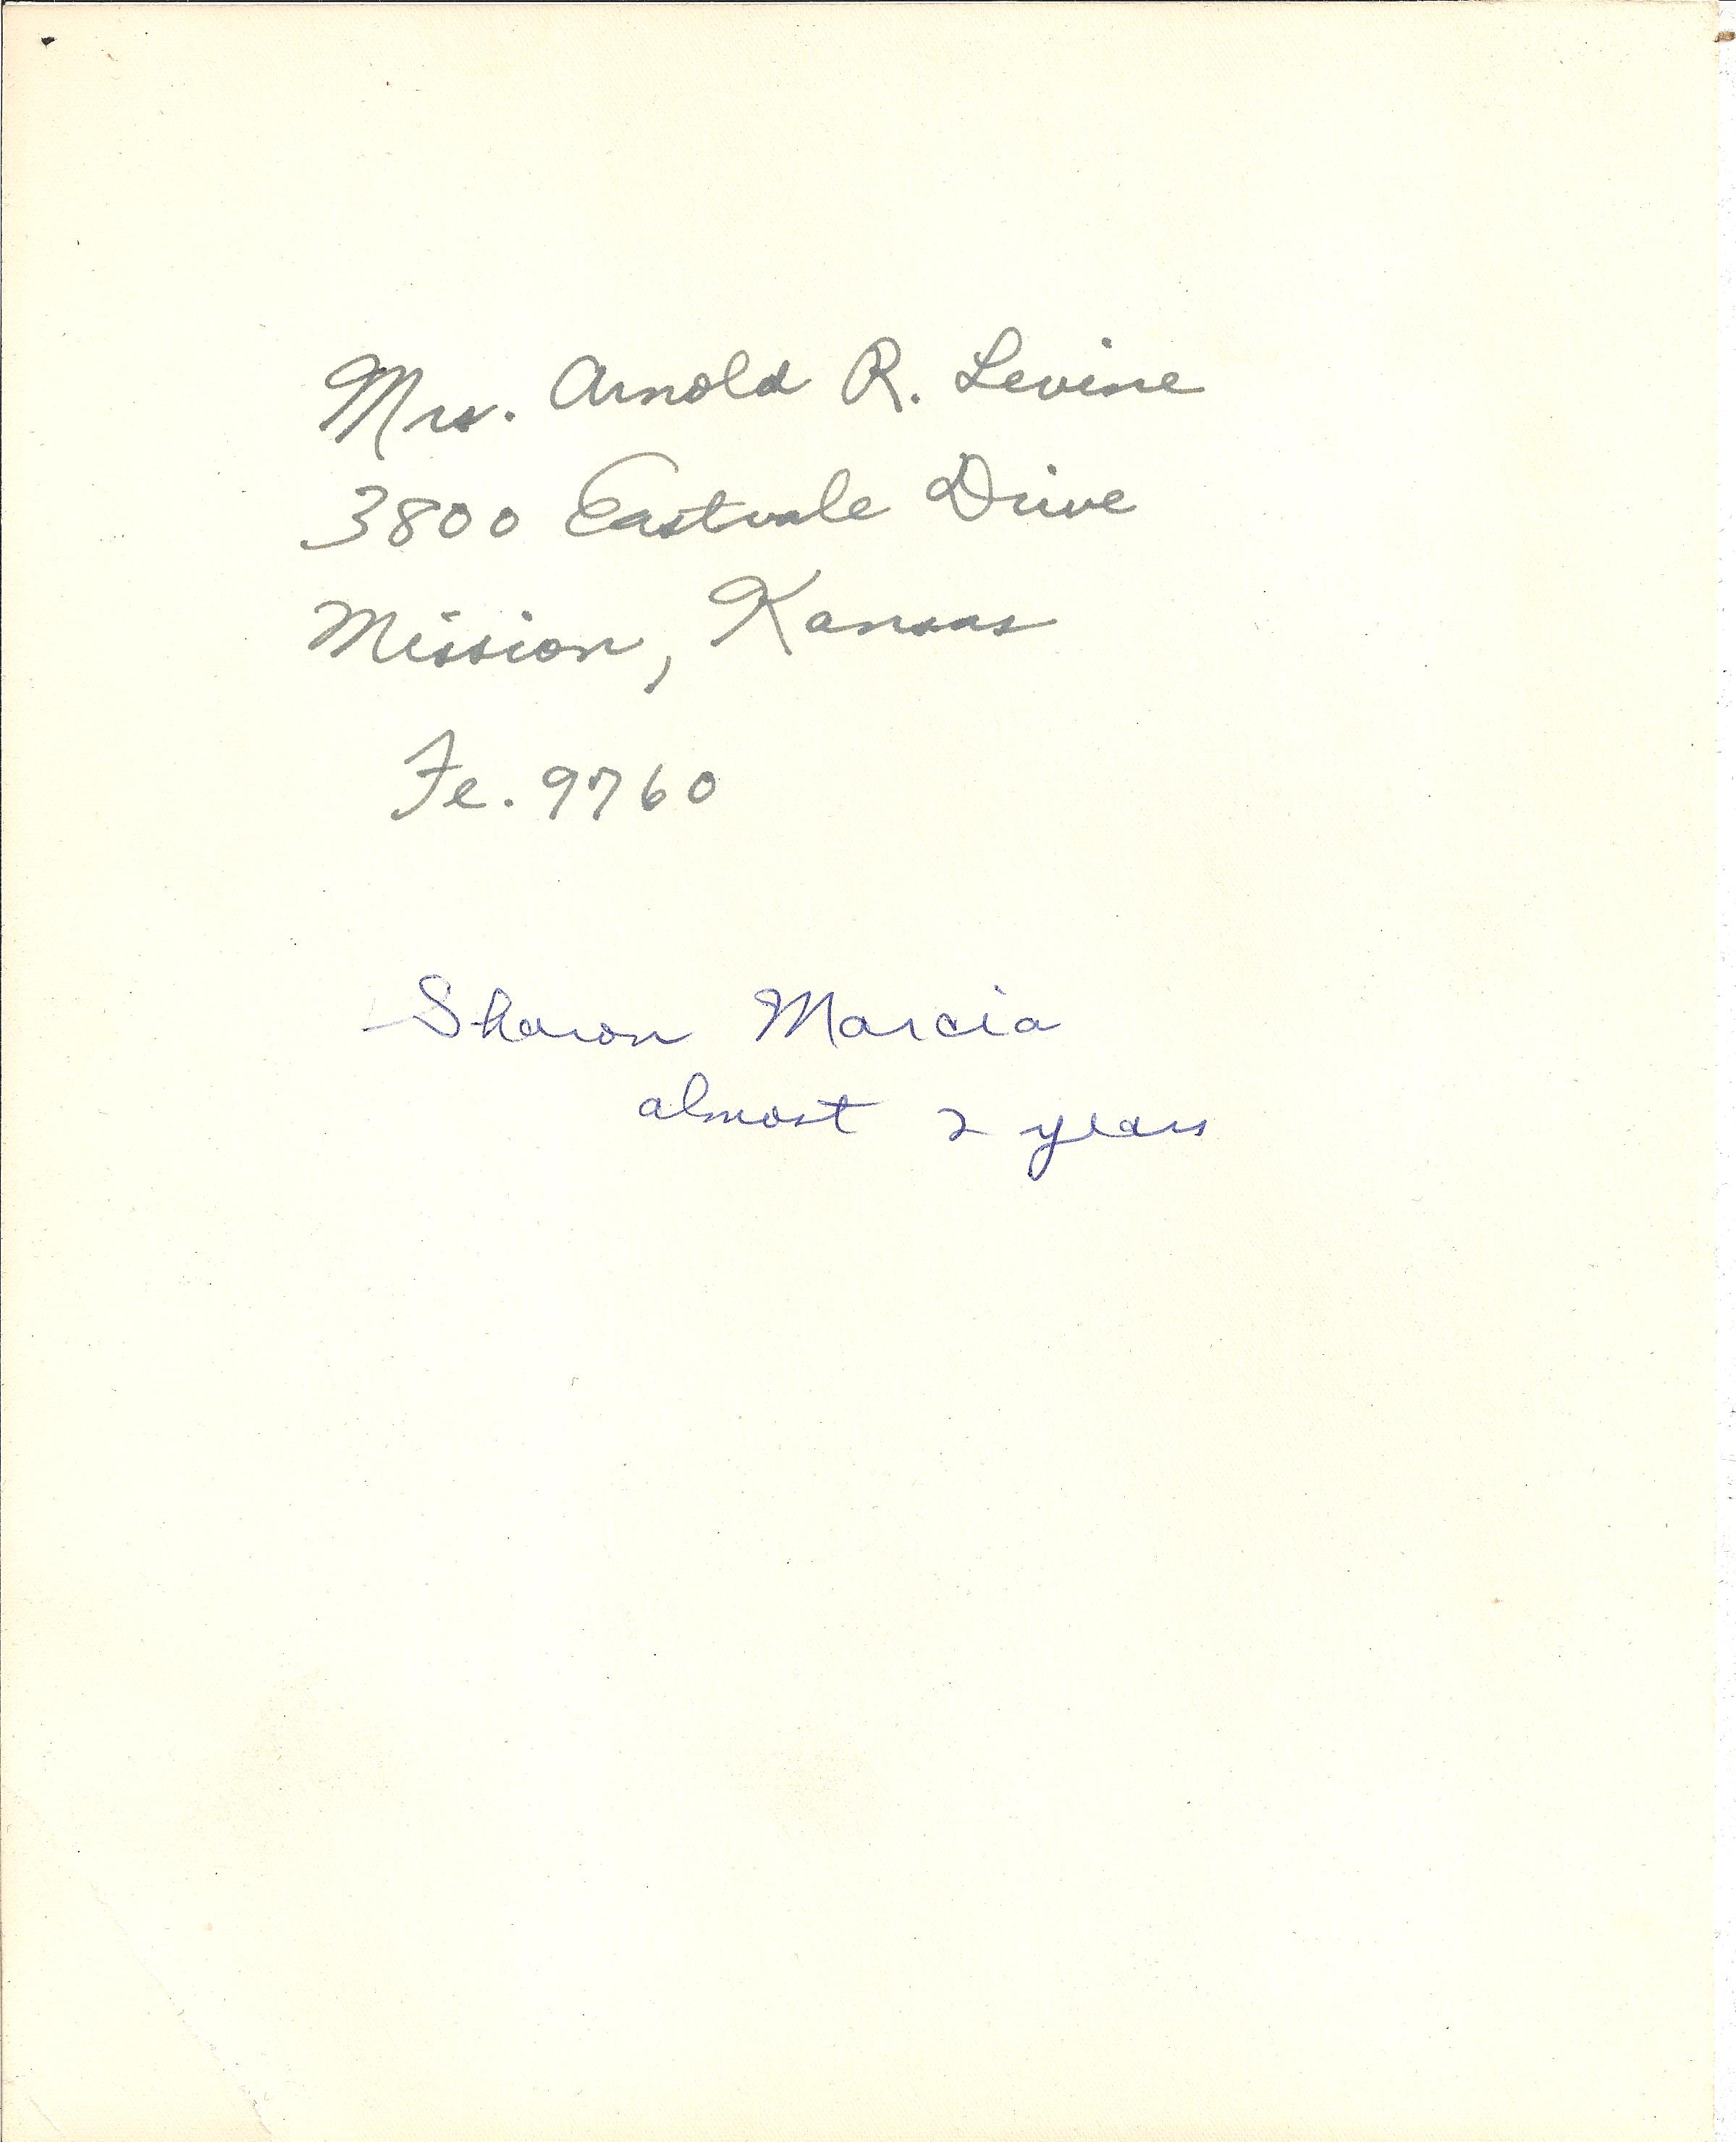 Mrs. Arnold R. Levine
3800 Eastvale Drive
Mission, Kansas
Fe. 9760
Sharon Marcia
almost 2 years